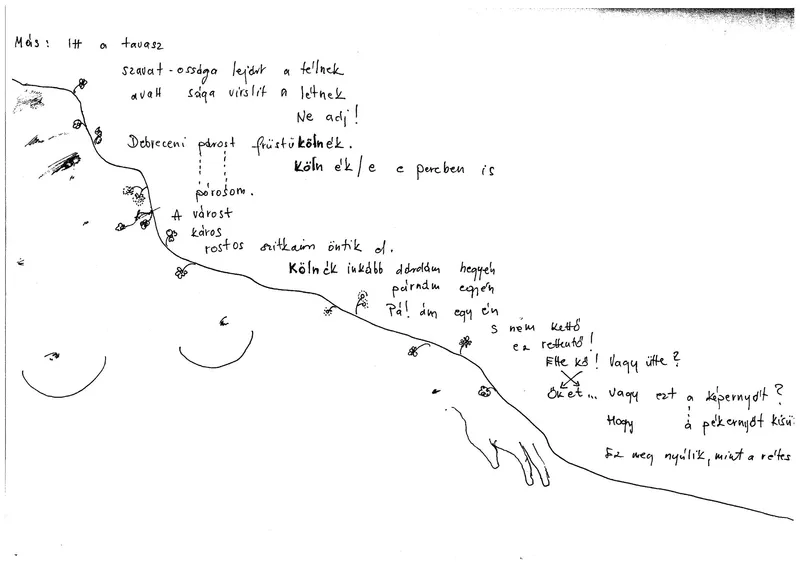 Más: Itt a tavasz
szavat-ossága lejárt a télnek
avatt sága virslit a létnek
Ne adj!
Debreceni párost früstükölnék.
Köln ék/e e percben is
párosom.
A várost
káros
rostos szitkaim öntik el.
Kölnék inkább dárdám hegyén
párnám egyén
Pá! ám egy én
s nem kettő
ez rettentő!
Ette kő! Vagy ütte?
Őket... vagy ezt a képernyőt?
Hogy a pékernyőt kisü
Ez meg nyúlik, mint a rétes